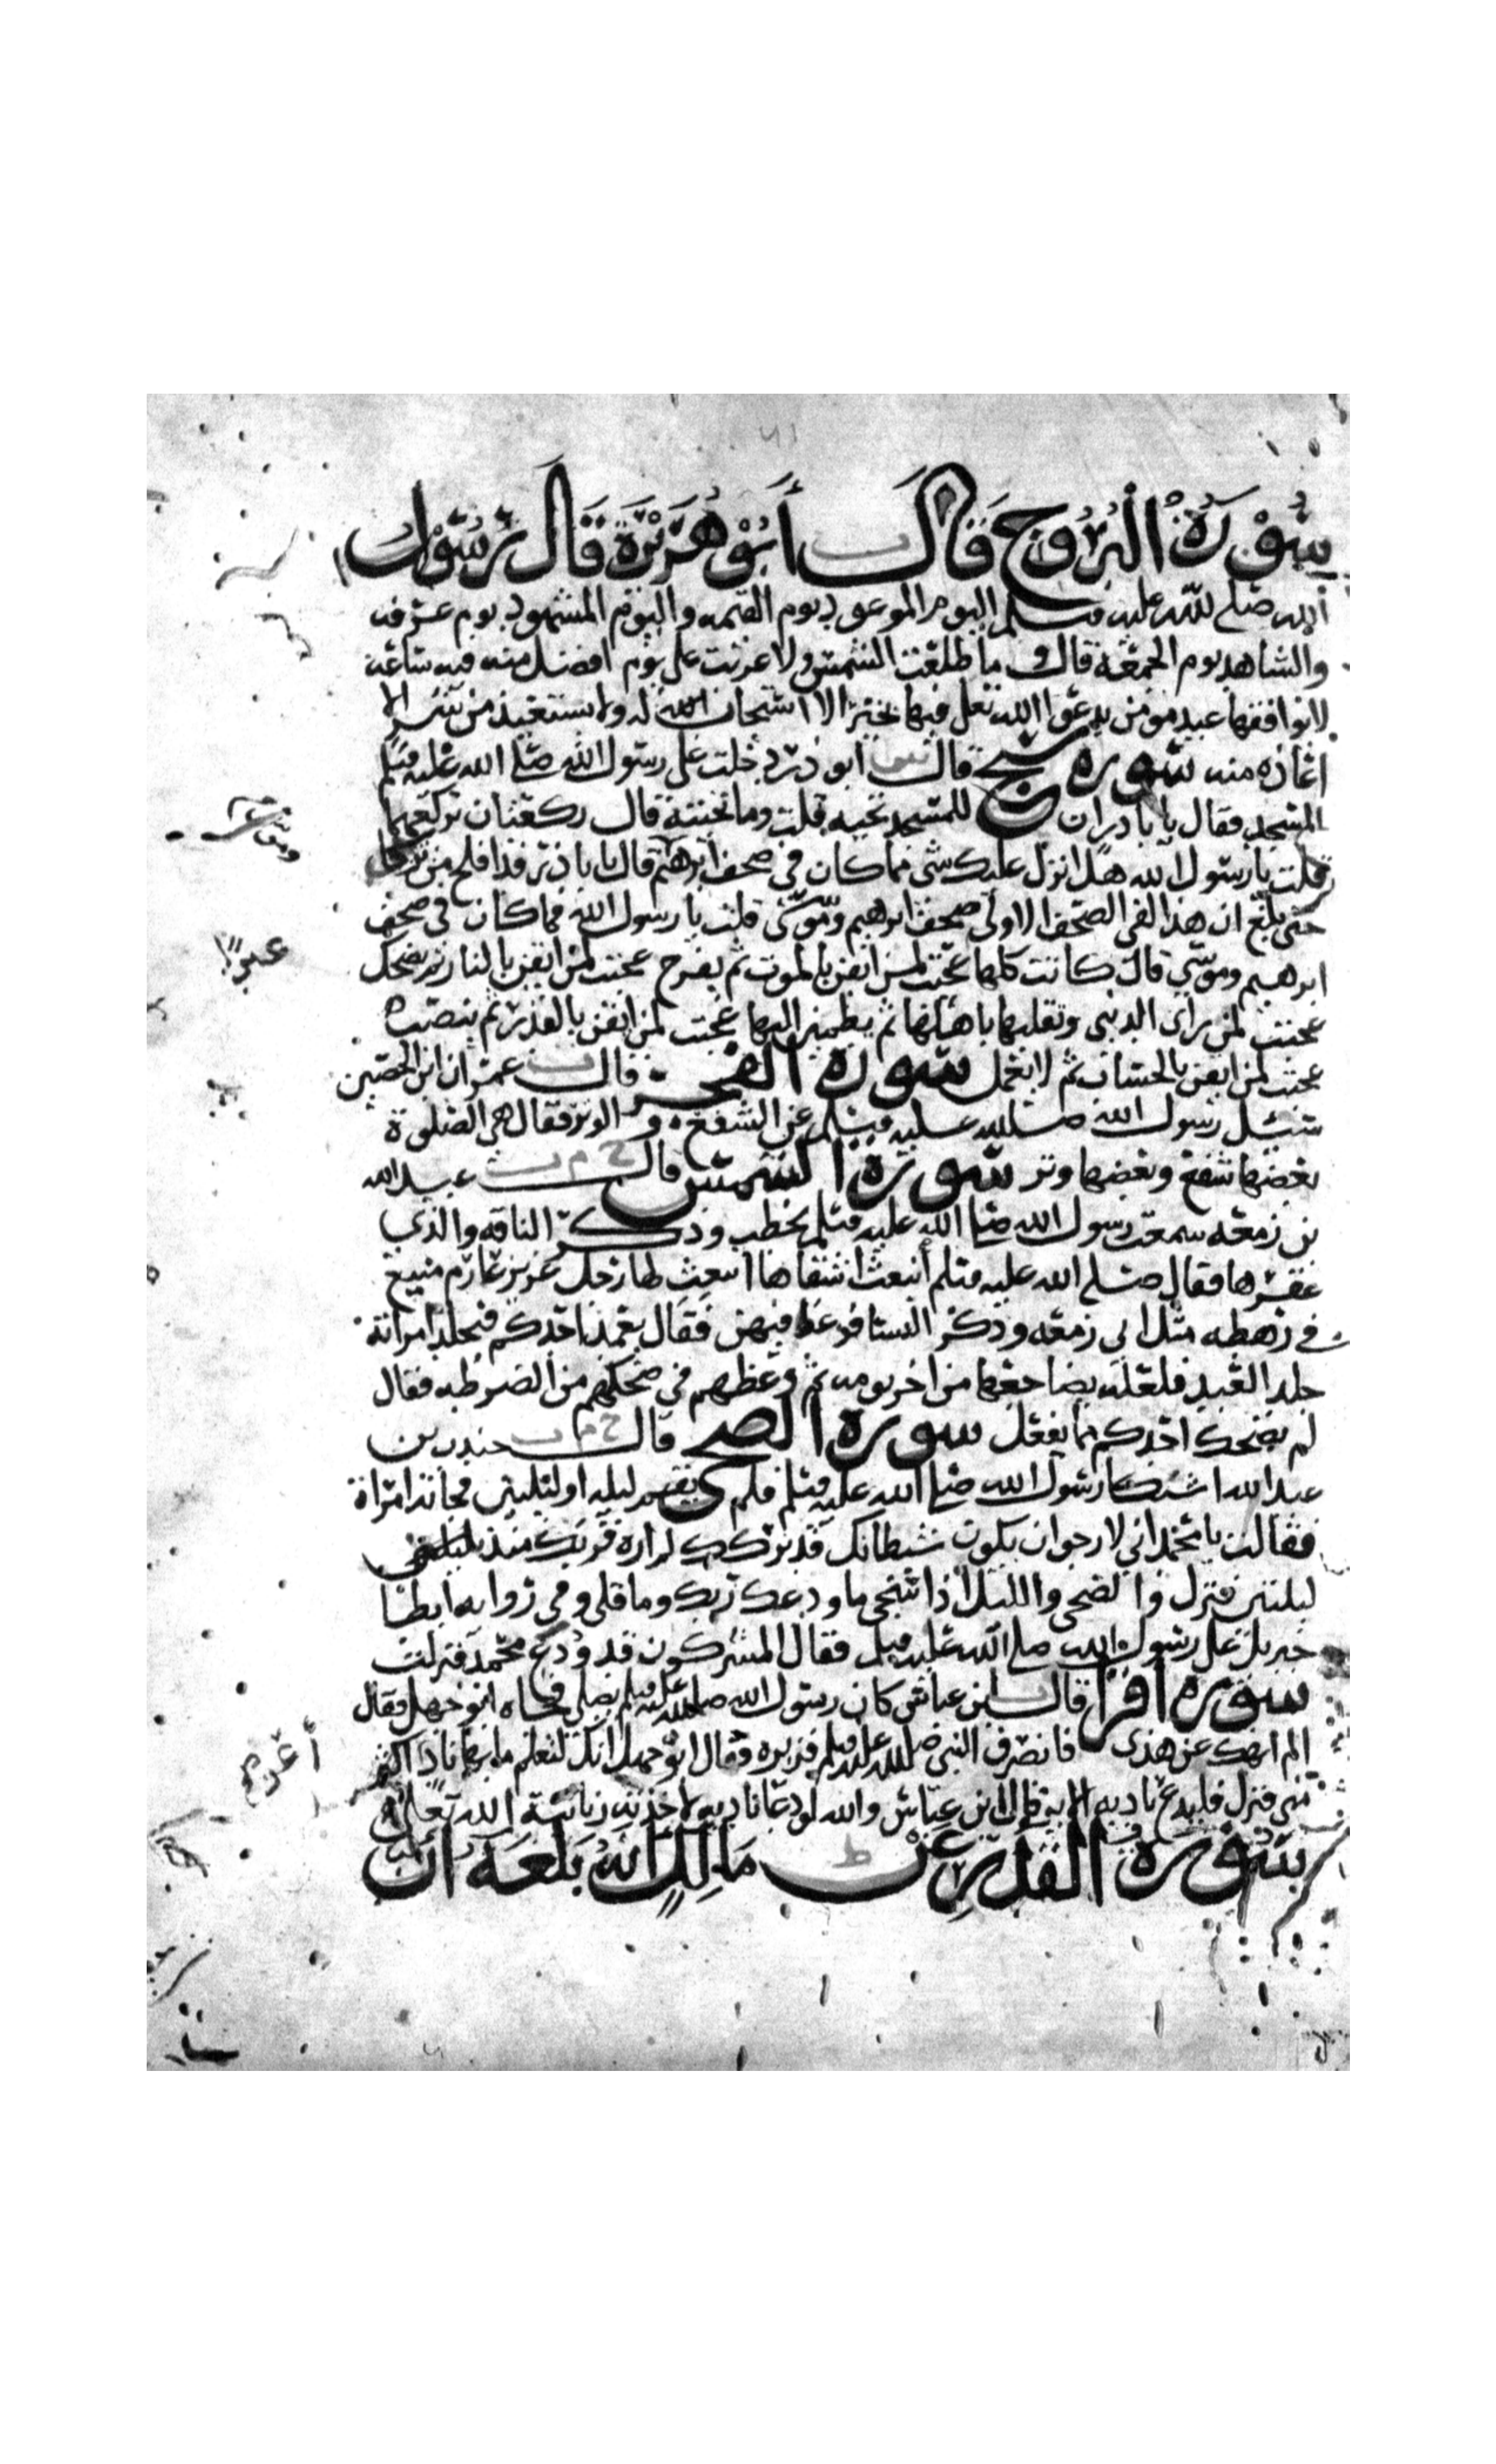 سُوْرَةُ الْبُرُوج قَالَ ت أَبُوْ هُرَيْرَةَ قَالَ رَسُوْلُ
الله صلى الله عليه وسلم اليوم الموعود يوم القيمه واليوم المشهود يوم عرفه
والشاهد يوم الجمعة قال وما طلعت الشمس ولا غربت على يوم افضل منه فيه ساعة
لا يوافقها عبد مومن يدعوا الله تعلى فيها بخير الا استجاب الله له ولا يستعيذ من شر الا
اعاذه منه سورة سبح قال ابو ذر دخلت على رسول الله صلى الله عليه وسلم
المسجد فقال يا با ذر ان للمسجد تحيه قلت وما تحيته قال ركعتان تركعهما
قلت يا رسول الله هل انزل عليك شى مما كان في صحف ابرهيم قال يا با ذر قد افلح من تزكا
حتى بلغ ان هذا لفى الصحف الاولى صحف ابرهيم وموسى قلت يا رسول الله فما كان في صحف
ابرهيم وموسى قال كانت كلها عجبت لمن ايقن بالموت ثم يفرح عجبت لمن ايقن بالنار ثم يضحك
عجبت لمن راى الدنيى وتقلبها باهلها ثم يطمين اليها عجبت لمن ايقن بالقدر ثم ينصب
عجبت لمن ايقن بالحساب ثم لا يعمل سورة الفجر قال ت عمران ابن الحصين
سئل رسول الله صلى الله عليه وسلم عن الشفع والوتر فقال هي الصلوة
بعضها شفع وبعضها وتر سورة الشمس قال خ م ت عبد الله
بن زمعه سمعت رسول الله صلى الله عليه وسلم يخطب وذكر الناقه والذي
عقرها فقال صلى الله عليه وسلم أنبعث اشقاها انبعث لها رجل عزيز عارم منيع
في رهطه مثل ابي زمعه وذكر النسا فوعظ فيهن فقال يعمد احدكم فيجلد امراته
جلد العبد فلعله يضاجعها من اخر يومه ثم وعظهم في ضحكهم من الضرطه فقال
لم يضحك احدكم مما يفعل سورة الضحى قال خ م ت جندب بن
عبد الله اشتكا رسول الله صلى الله عليه وسلم فلم يقم ليله او ليلتين فجائه امراة
فقالت يا محمد اني لارجو ان يكون شيطانك قد تركك لم اره قربك منذ
ليلتين فنزل والضحى والليل اذا سجى ما ودعك ربك وما قلى وفي روايه ابطا
جبريل على رسول الله صلى الله عليه وسلم فقال المشركون قد ودع محمد فنزلت
سورة اقرا قال ت ابن عباس كان رسول الله صلى الله عليه وسلم يصلي فجاه ابو جهل فقال
الم انهك عن هذى فانصرف النبي صلى الله عليه وسلم فزبره فقال ابو جهل انك لتعلم ما بها ناد اكثر
مني فنزل فليدع ناديه الايه قال ابن عباس والله لو دعا ناديه لاخذته زبانية الله تعالى
سُورَة القَدْرِ عَنْ ط مَالِكٍ أَنَّهُ بَلَغَهُ أَنَّ